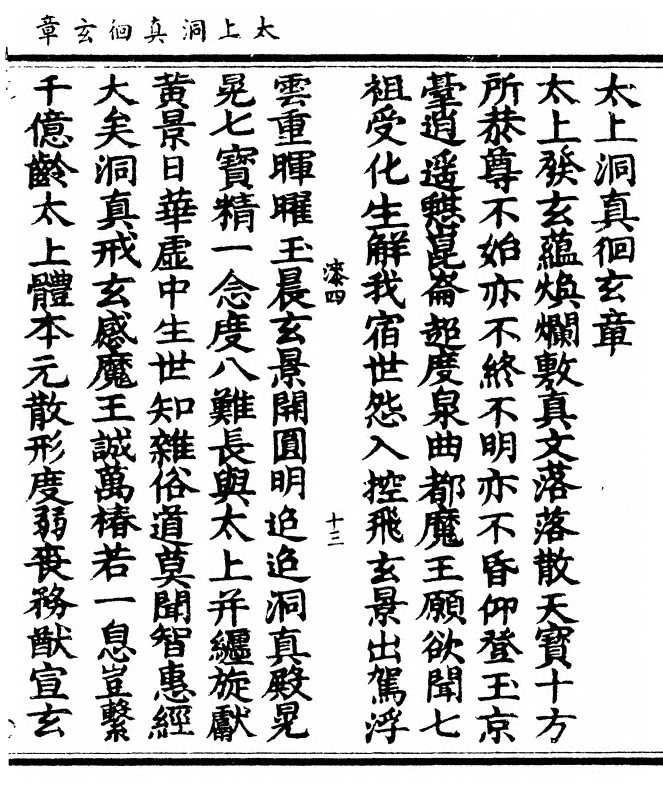 太上洞真徊玄章
太上洞真徊玄章
太上發玄蘊煥爛敷真文落落散天寶十方
所恭尊不始亦不終不明亦不昏仰登玉京
臺逍遥麒崑崙超度泉曲都魔王願欲聞七
祖受化生解我宿世怨入控飛玄景出駕浮
漆四 十三
雲重暉曜玉晨玄景開圓明迢迢洞真殿晃
晃七寶精一念度八難長與太上并纏旋獻
黄景日華虛中生世知雜俗道莫聞智惠經
大矣洞真戒玄感魔王誠萬椿若一息豈繫
千億齡太上體本元散形度弱喪務猷宣玄